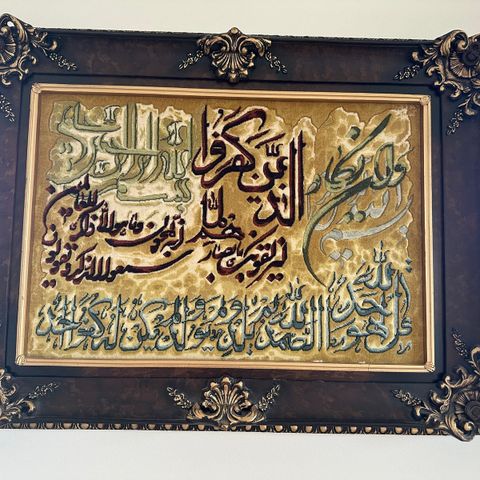 بسم الله الرحمن الرحيم
وان يكاد الذين كفروا
ليزلقونك بابصارهم لما سمعوا الذكر ويقولون
انه لمجنون وما هو الا ذكر للعالمين
قل هو الله احد الله الصمد لم يلد ولم يولد ولم يكن له كفوا احد